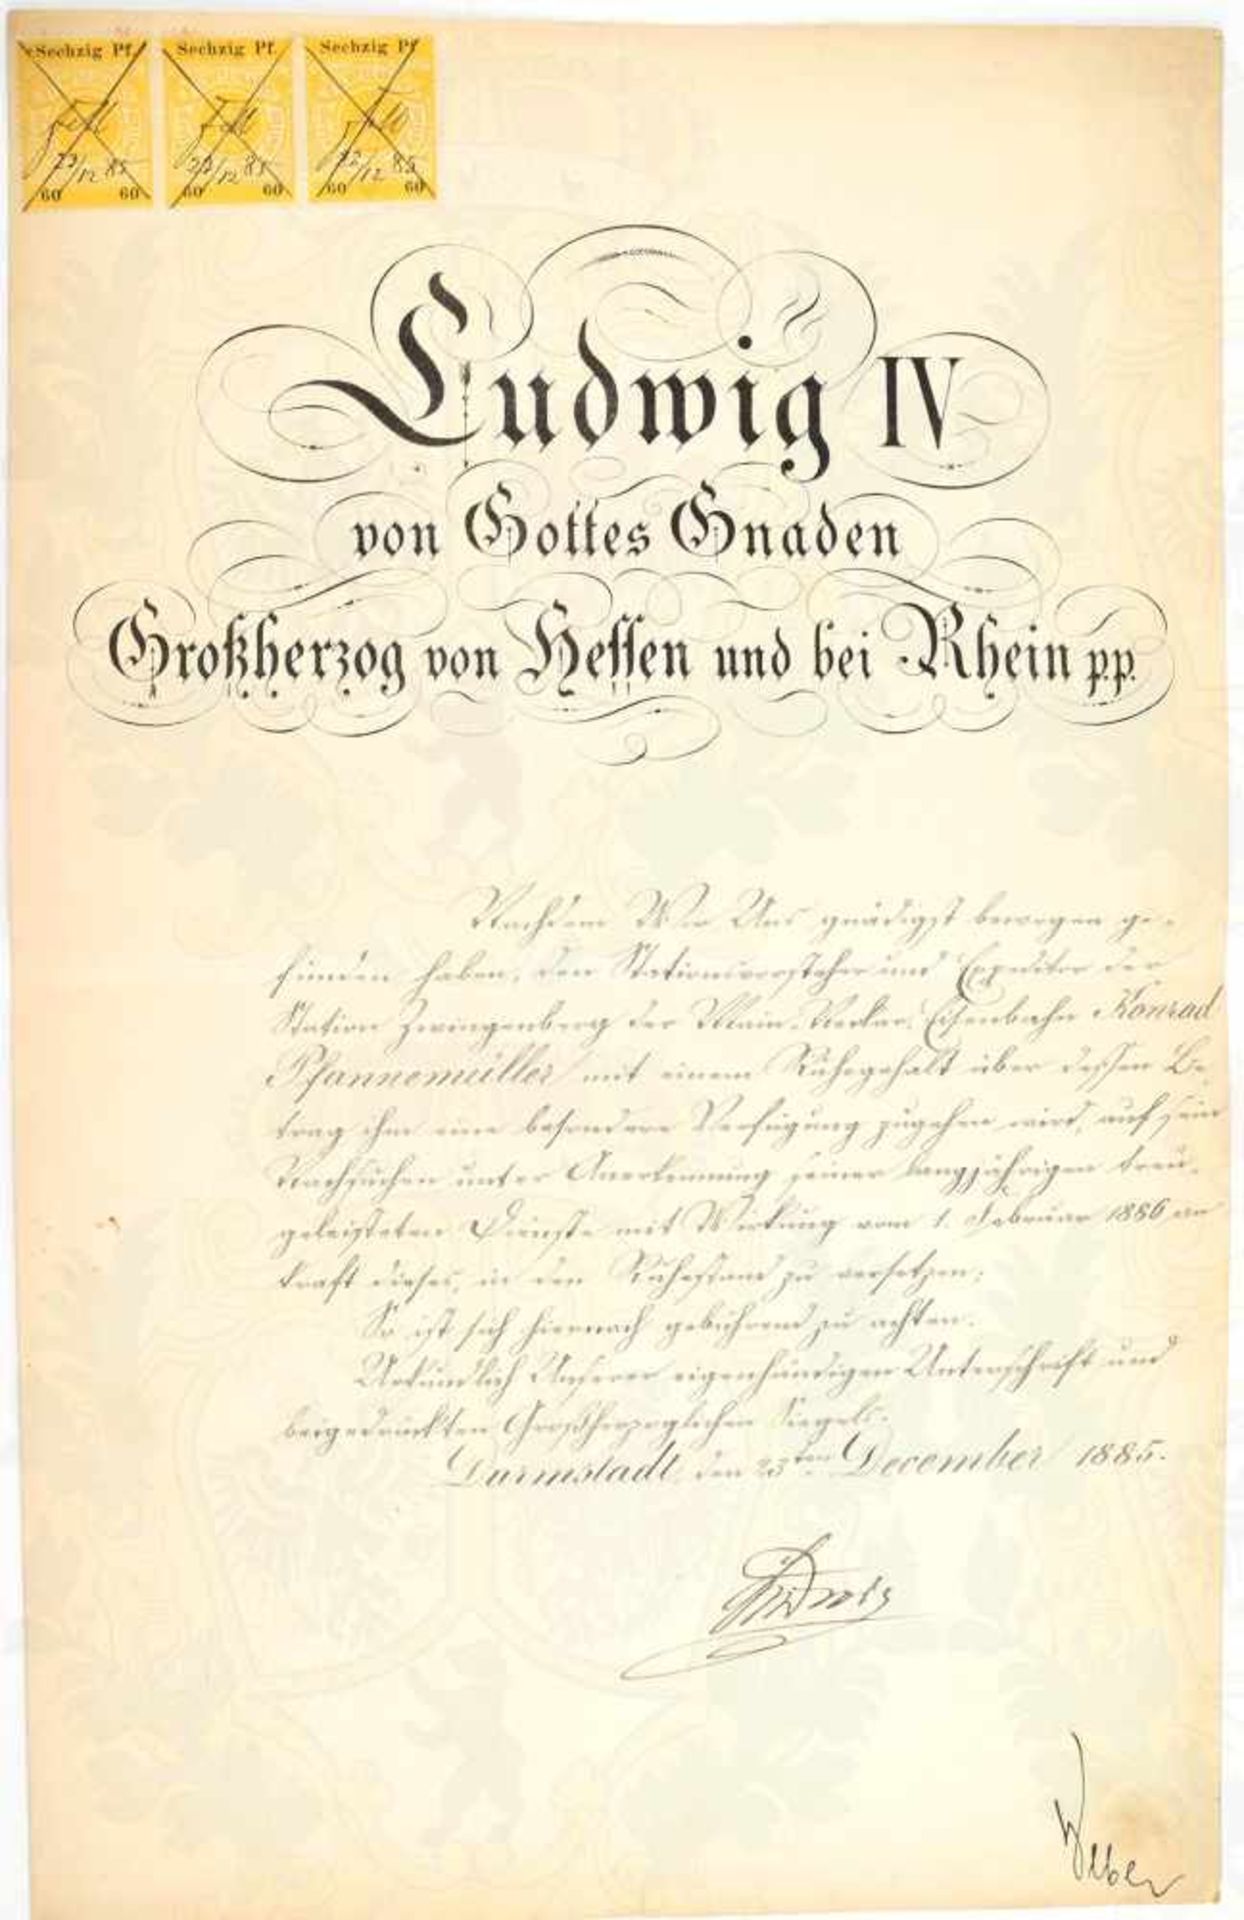 Sechzig Pf. Sechzig Pf. Sechzig Pf
23/12 85 23/12 85 23/12 85
60 60 60 60 60 60
Ludwig IV
von Gottes Gnaden
Großherzog von Hessen und bei Rhein p.p.
Nachdem Wir Uns gnädigst bewogen ge-
funden haben, den Stationsvorsteher und Expeditor der
Station Zwingenberg der Main-Neckar-Eisenbahn Konrad
Pfannemüller mit einem Ruhegehalt über dessen Be-
trag ihm eine besondere Verfügung zugehen wird, auf sein
Nachsuchen unter Anerkennung seiner langjährigen treu-
geleisteten Dienste mit Wirkung vom 1. Februar 1886 an
kraft dieses, in den Ruhestand zu versetzen;
So ist sich hiernach gebührend zu achten.
Urkundlich Unserer eigenhändigen Unterschrift und
beigedrückten Großherzoglichen Siegels.
Darmstadt, den 23ten December 1885.
Ludwig
Weber